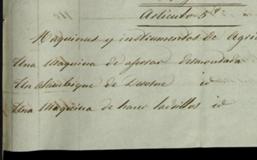 Articulo 5º.
Maquinas y instrumentos de Agri
Una Maquina de aserrar desmontada
Un Alambique de Derosne id
Una Maquina de hacer ladrillos id